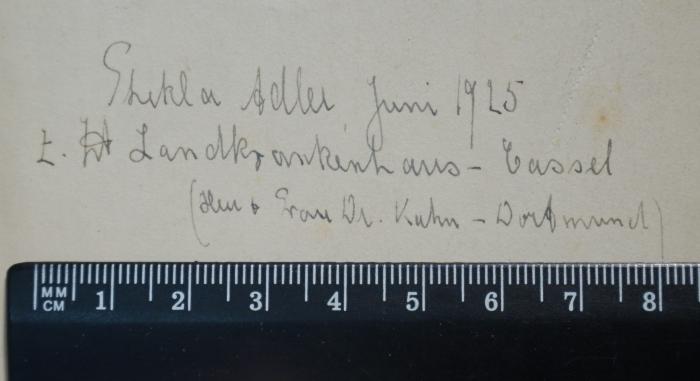 Thekla Adler Juni 1925
z. Zt Landkrankenhaus - Cassel
(Herr & Frau Dr. Kuhn - Dortmund)
MM 1 2 3 4 5 6 7 8
CM